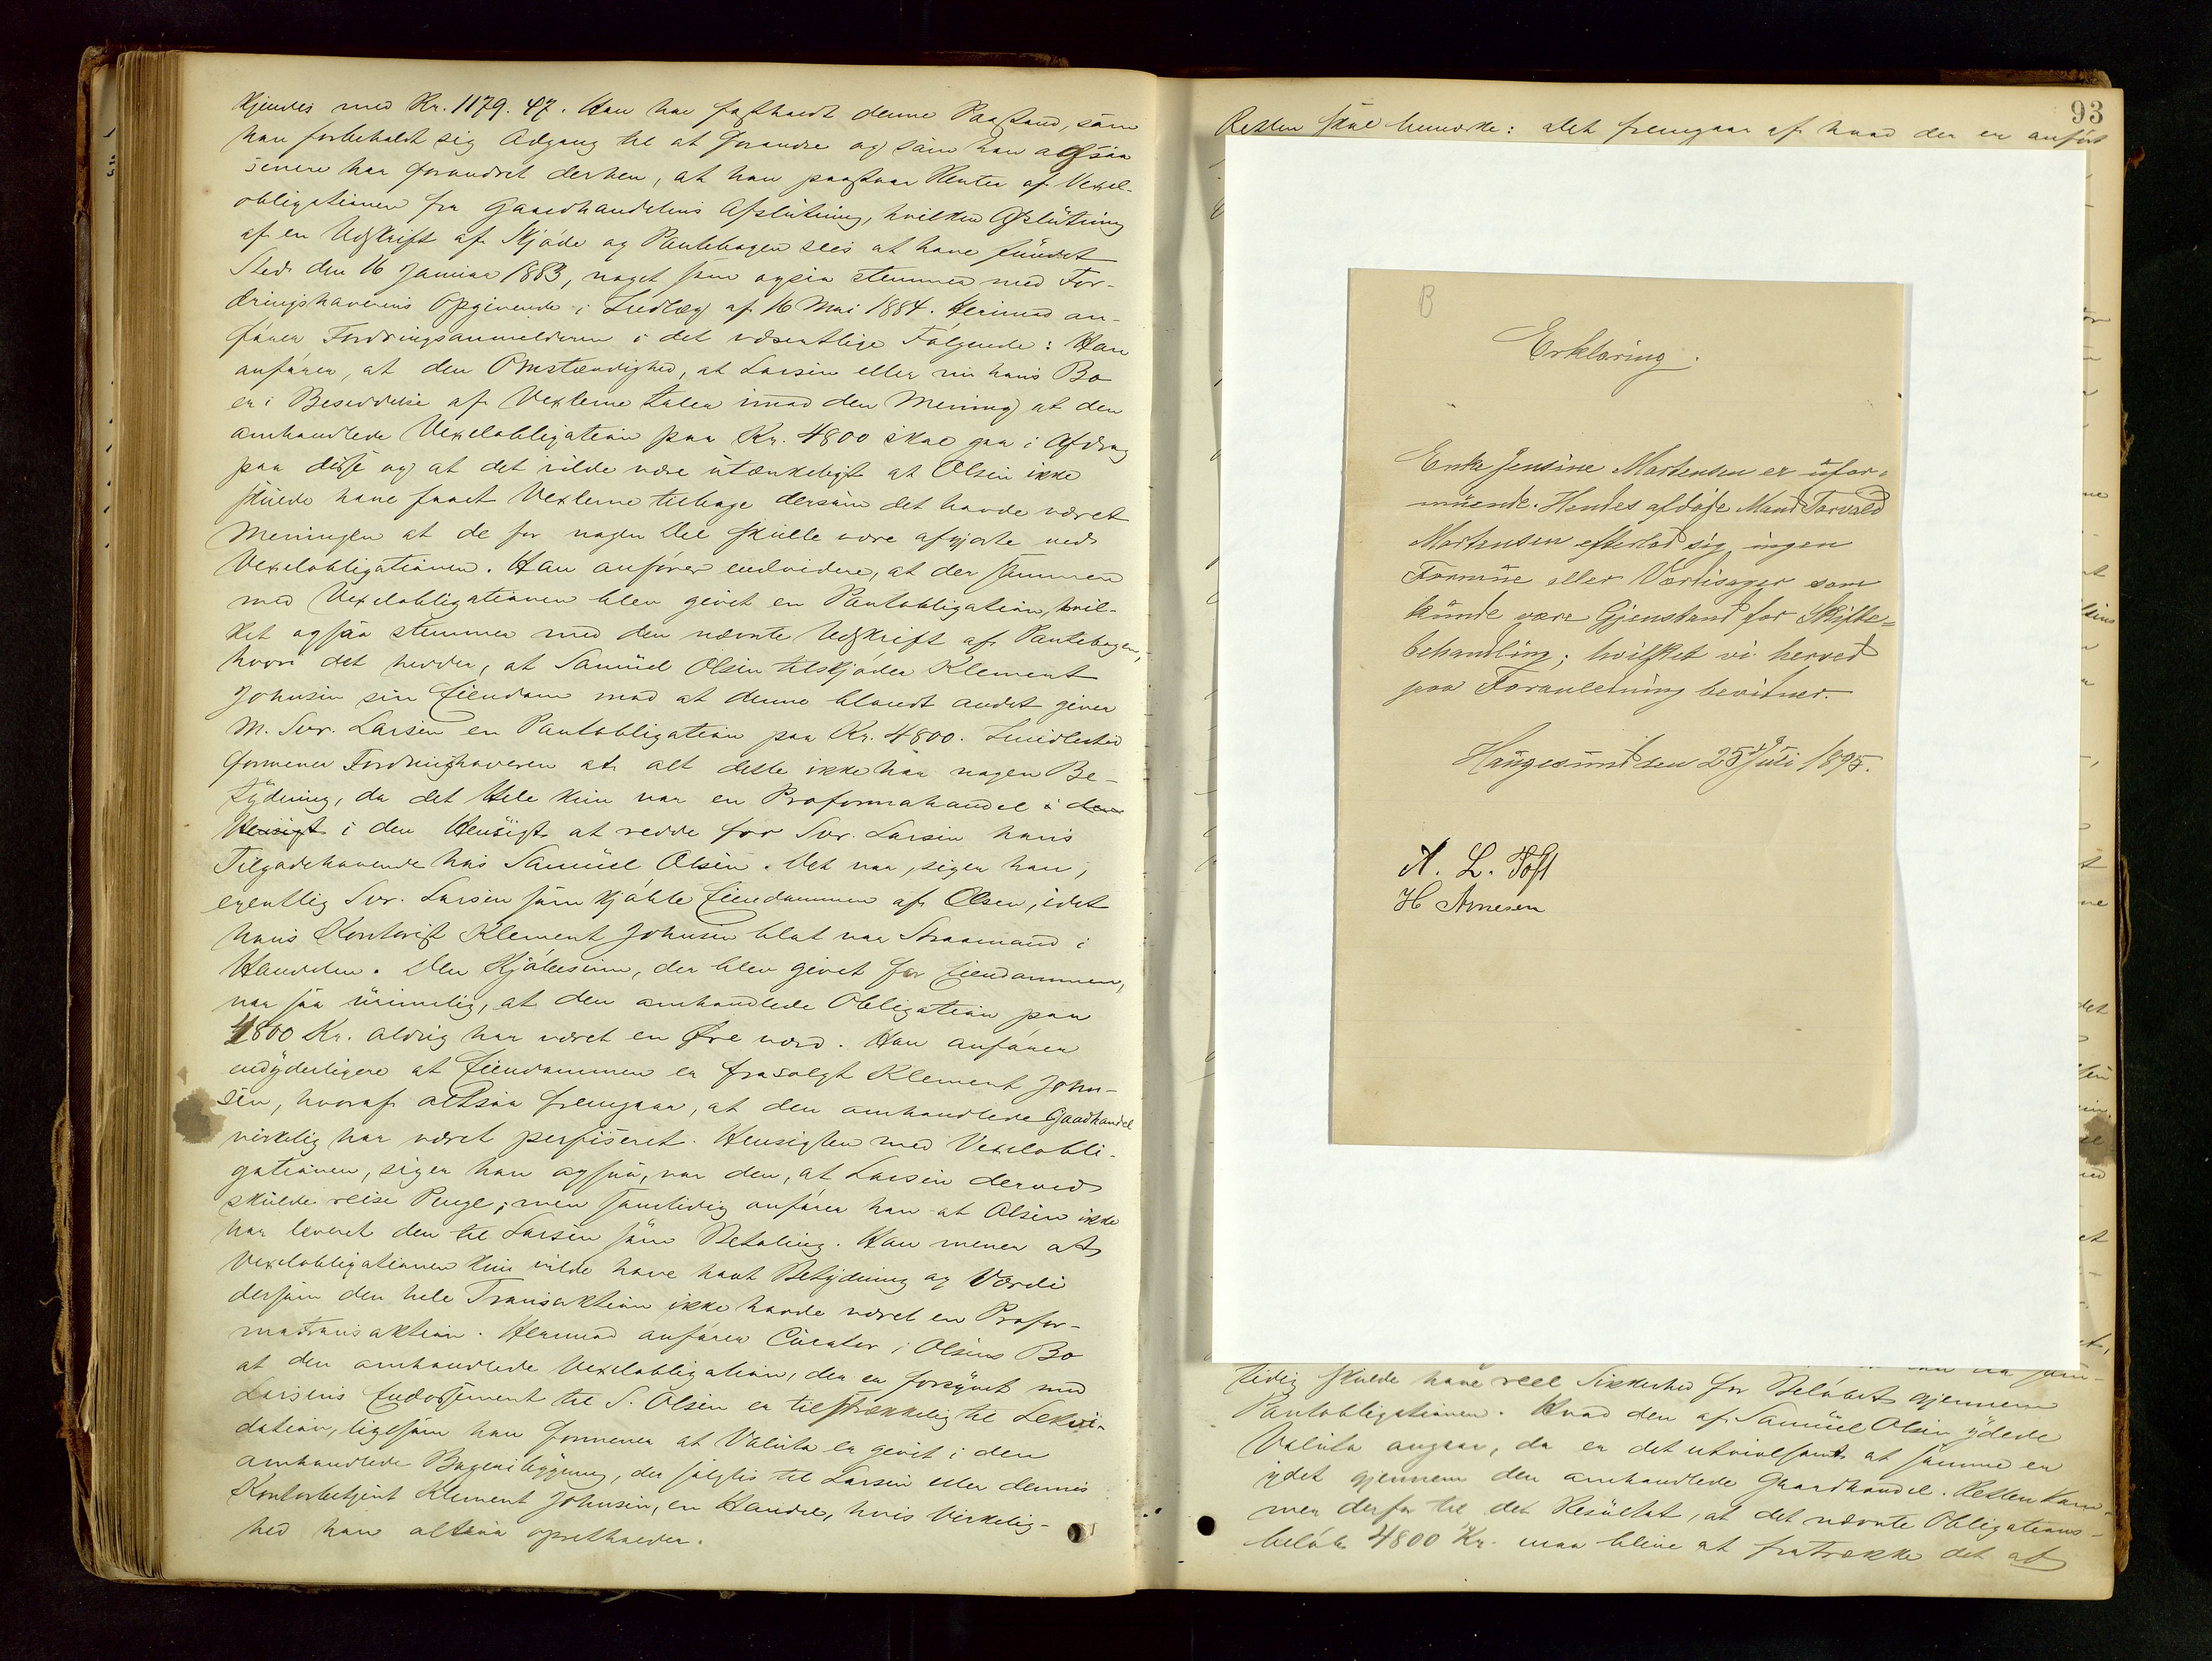 kjendes med Kr. 1179.47. Han har fastholdt denne Paastand, som
han forbeholdt sig Adgang til at forandre og som han ogsaa
senere har forandret derhen, at han paastaar Renter af Vexel-
obligationen fra Gaardhandelens Afslutning, hvilken Afslutning
af en Udskrift af Skjøde og Pantebogen sees at have fundet
Sted den 16 Januar 1883, noget som ogsaa stemmer med For-
dringshaverens Opgivende i Indlæg af 16 Mai 1884. Herimod an-
fører Fordringsanmelderen i det væsentlige Følgende: Han
anfører, at den Omstændighed, at Larsen eller nu hans Bo
er i Besiddelse af Vexlerne taler imod den Mening at den
omhandlede Vexelobligation paa Kr. 4800 skal gaa i Afdrag
paa disse og at det vilde være utænkeligt at Olsen ikke
skulde have faaet Vexlerne tilbage dersom det havde været
Meningen at de for nogen Del skulle være afgjorte ved
Vexelobligationen. Han anfører endvidere, at der sammen
med Vexelobligationen blev givet en Pantobligation, hvil-
ket ogsaa stemmer med den nævnte Udskrift af Pantebogen,
hvori det hedder, at Samuel Olsen tilskjøder Klement
Johnsen sin Eiendom mod at denne blandt andet giver
M. Svr. Larsen en Pantobligation paa Kr. 4800. Imidlertid
formener Fordringshaveren at alt dette ikke har nogen Be-
tydning, da det Hele kun var en Proformahandel i den
Hensigt i den Hensigt at redde for Svr. Larsen hans
Tilgodehavende hos Samuel Olsen. Det var, siger han,
egentlig Svr. Larsen som kjøbte Eiendommen af Olsen, idet
hans Kontorist Klement Johnsen blot var Straamand i
Handelen. Den Kjøbesum, der blev givet for Eiendommen,
var saa urimelig, at den omhandlede Obligation paa
4800 Kr. aldrig har været en Øre værd. Han anfører
endyderligere at Eiendommen er frasolgt Klement John-
sen, hvoraf altsaa fremgaar, at den omhandlede Gaardhandel
virkelig har været perfiseret. Hensigten med Vexelobli-
gationen, siger han ogsaa, var den, at Larsen derved
skulde reise Penge; men samtidig anfører han at Olsen ikke
har leveret den til Larsen som Betaling. Han mener at
Vexelobligationen kun vilde have havt Betydning og Værdi
dersom den hele Transaktion ikke havde været en Profor-
matransaktion. Herimod anfører Curator i Olsens Bo
at den omhandlede Vexelobligation, der er forsynet med
Larsens Endossement til S. Olsen er tilstrækkelig til Lekvi-
dation, ligesom han formener at Valuta er givet i den
omhandlede Bageribygning, der solgtes til Larsen eller dennes
Kontorbetjent Klement Johnsen, en Handel, hvis Virkelig-
hed han altsaa opretholder.
93
Retten skal bemærke: Det fremgaar af hvad der er anført
B
Erklæring.
Enke Jensine Martensen er ufor-
muende. Hendes afdøde Mand Torvald
Martensen efterlod sig ingen
Formue eller Værdisager som
kunde være Gjenstand for Skifte=
behandling; hvilket vi herved
paa Foranledning bevidner.
Haugesund den 25 Juli 1895.
A. L. Toft
H Arnesen
tidig skulde have reel Sikkerhed for Beløbet gjennem
Pantobligationen. Hvad den af Samuel Olsen ydede
Valuta angaar, da er det utvivlsomt at samme er
ydet gjennem den omhandlede Gaardhandel. Retten kom-
mer derfor til det Resultat, at det nævnte Obligations-
beløb 4800 Kr. maa blive at fratrække det af